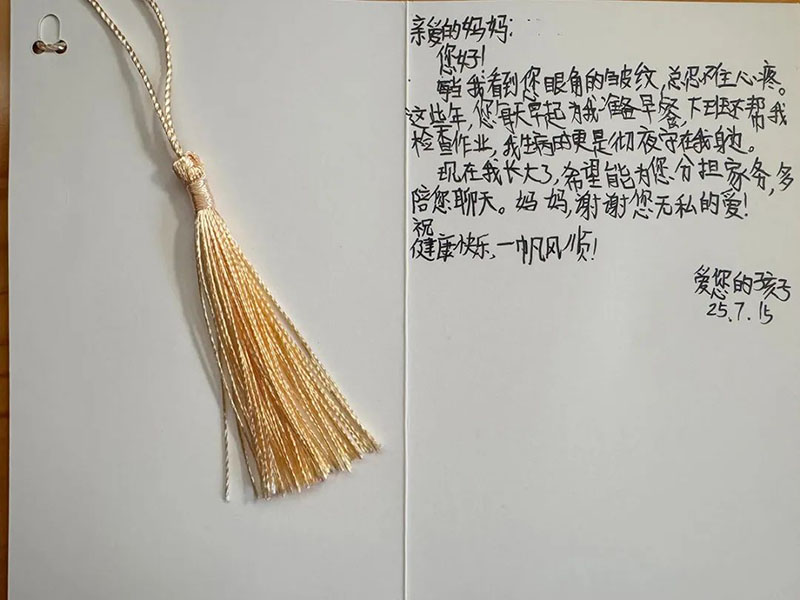 亲爱的妈妈:
您好!
每当我看到您眼角的皱纹,总忍不住心疼。
这些年,您每天早起为我准备早餐,下班还帮我
检查作业,我生病时更是彻夜守在我身边。
现在我长大了,希望能为您分担家务,多
陪您聊天。妈妈,谢谢您无私的爱!
祝
健康快乐,一帆风顺!
爱您的孩子
25.7.15